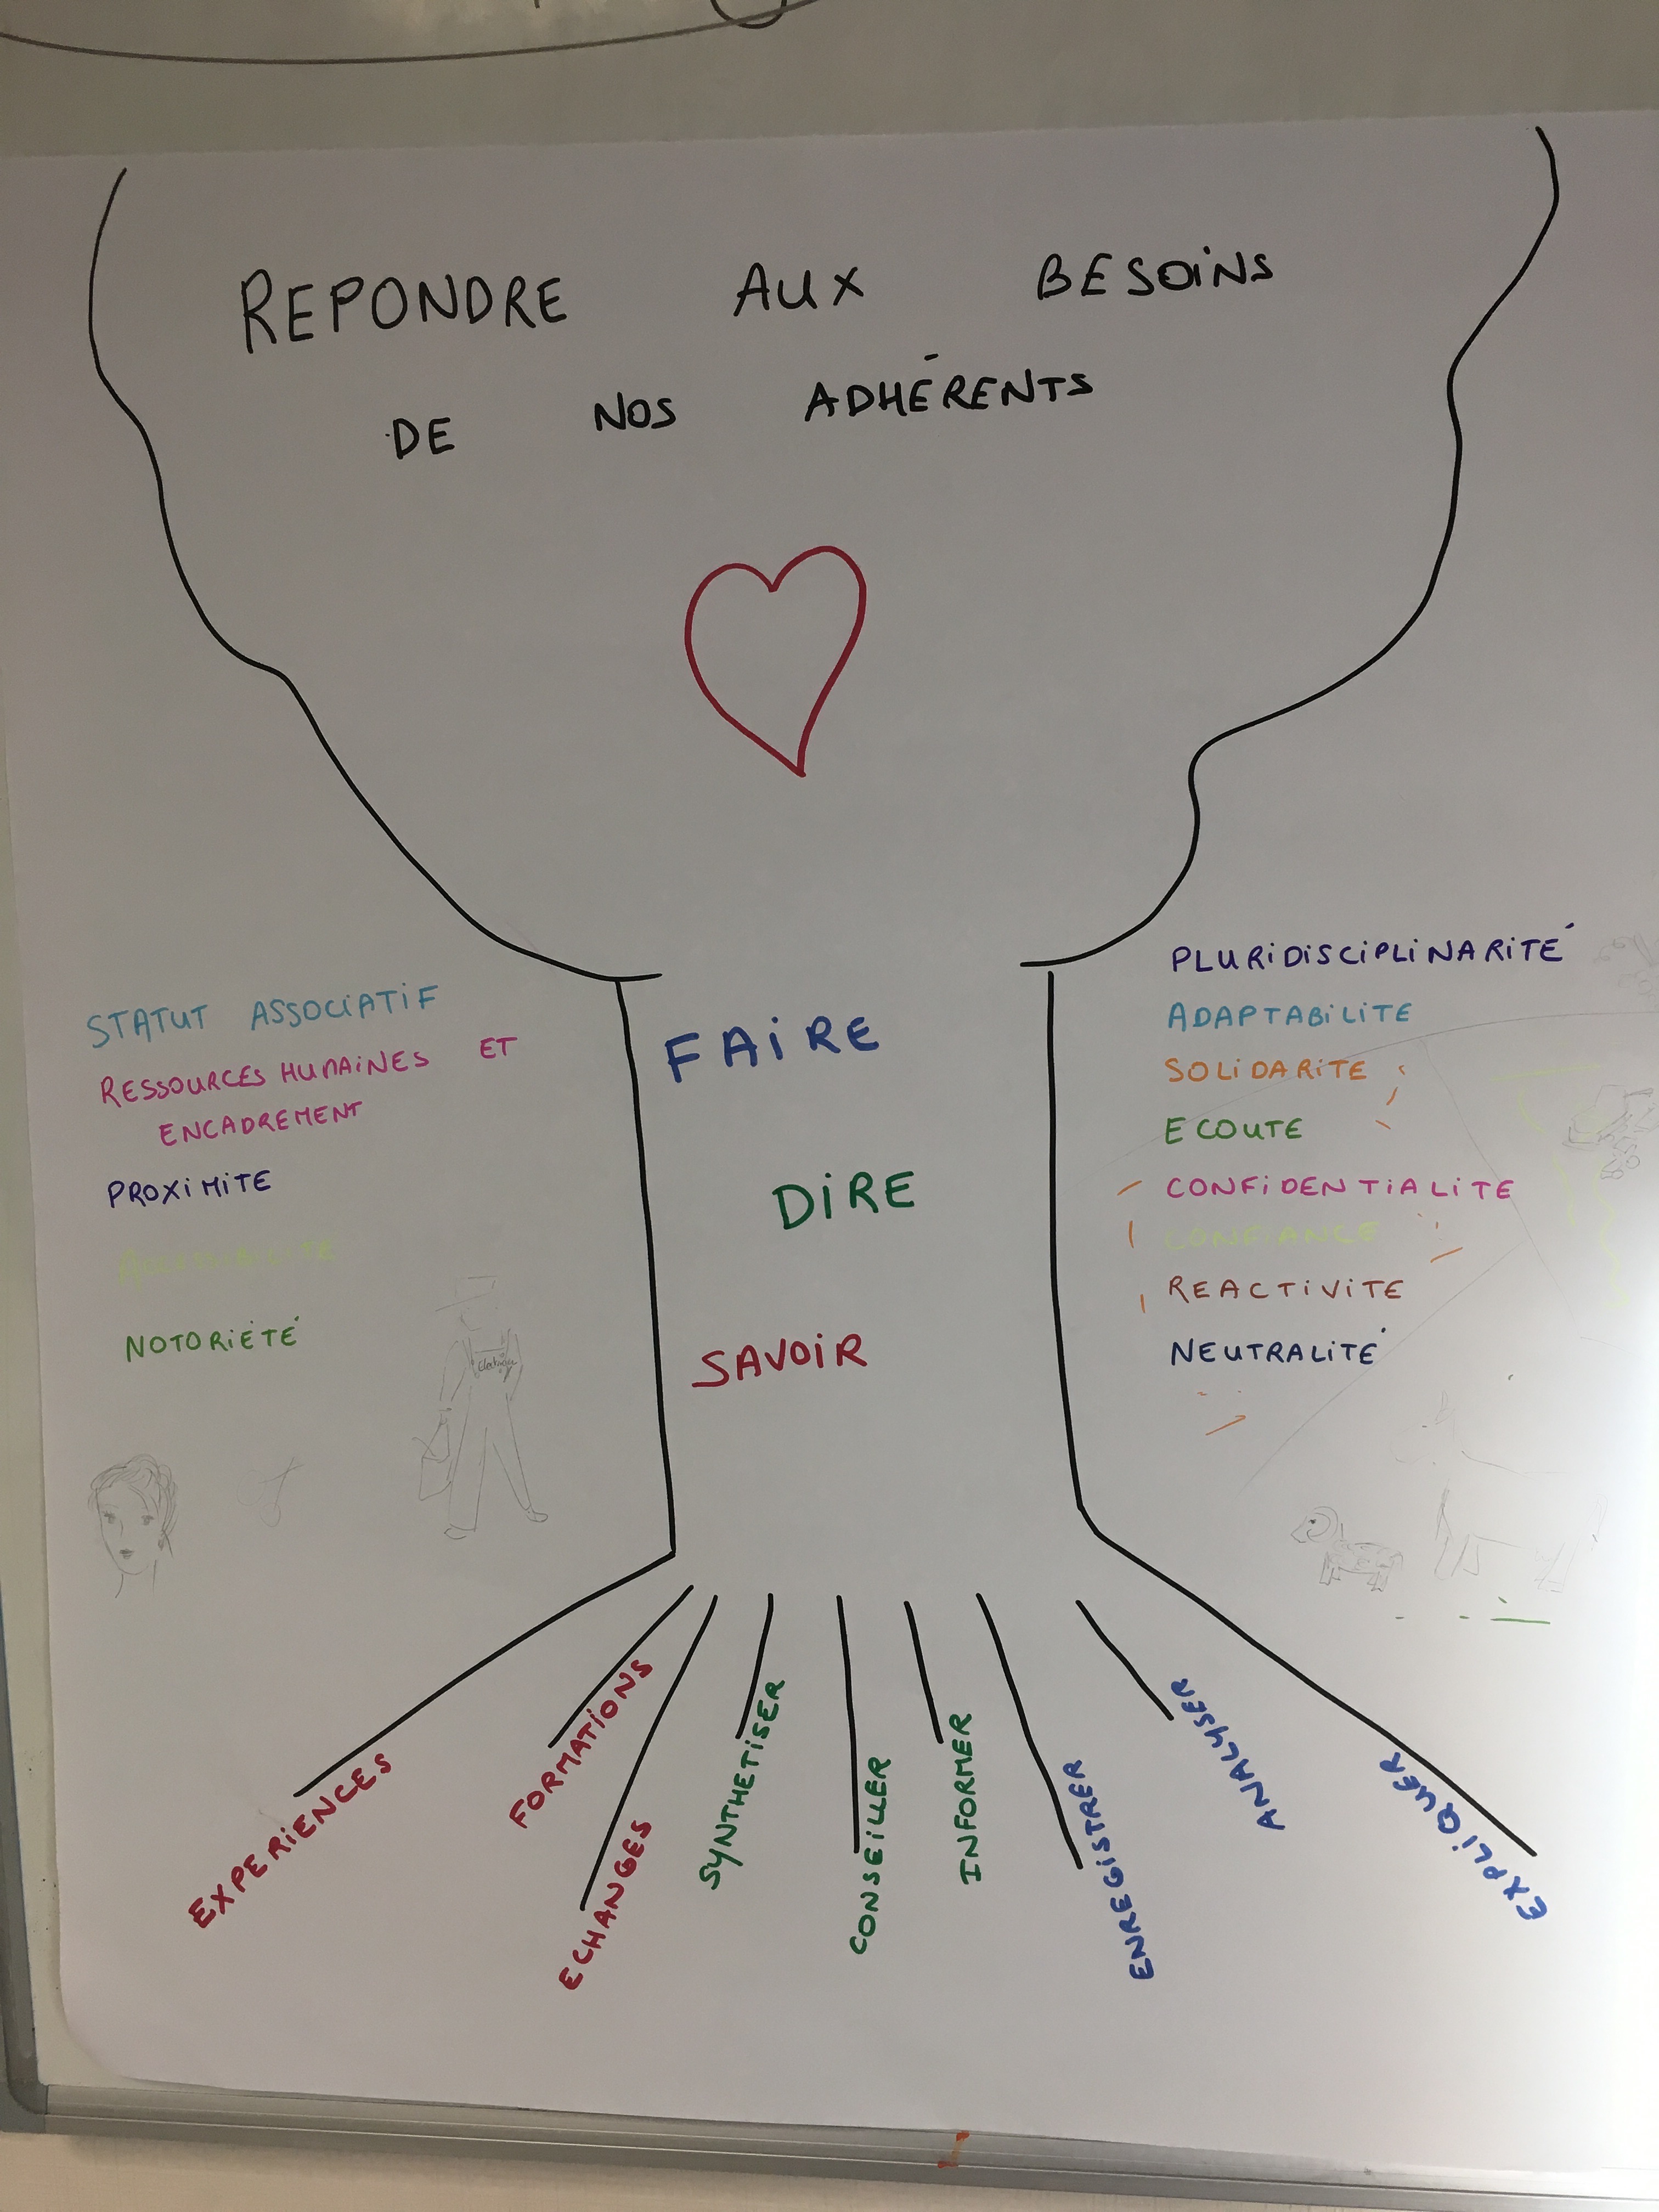 REPONDRE AUX BESOINS
DE NOS ADHÉRENTS
STATUT ASSOCIATIF
RESSOURCES HUMAINES ET
ENCADREMENT
PROXIMITE
ACCESSIBILITE
NOTORIÉTÉ
FAIRE
DIRE
SAVOIR
PLURIDISCIPLINARITÉ
ADAPTABILITE
SOLIDARITE
ECOUTE
CONFIDENTIALITE
CONFIANCE
REACTIVITE
NEUTRALITÉ
EXPERIENCES
FORMATIONS
ECHANGES
SYNTHETISER
CONSEILLER
INFORMER
ENREGISTRER
ANALYSER
EXPLIQUER